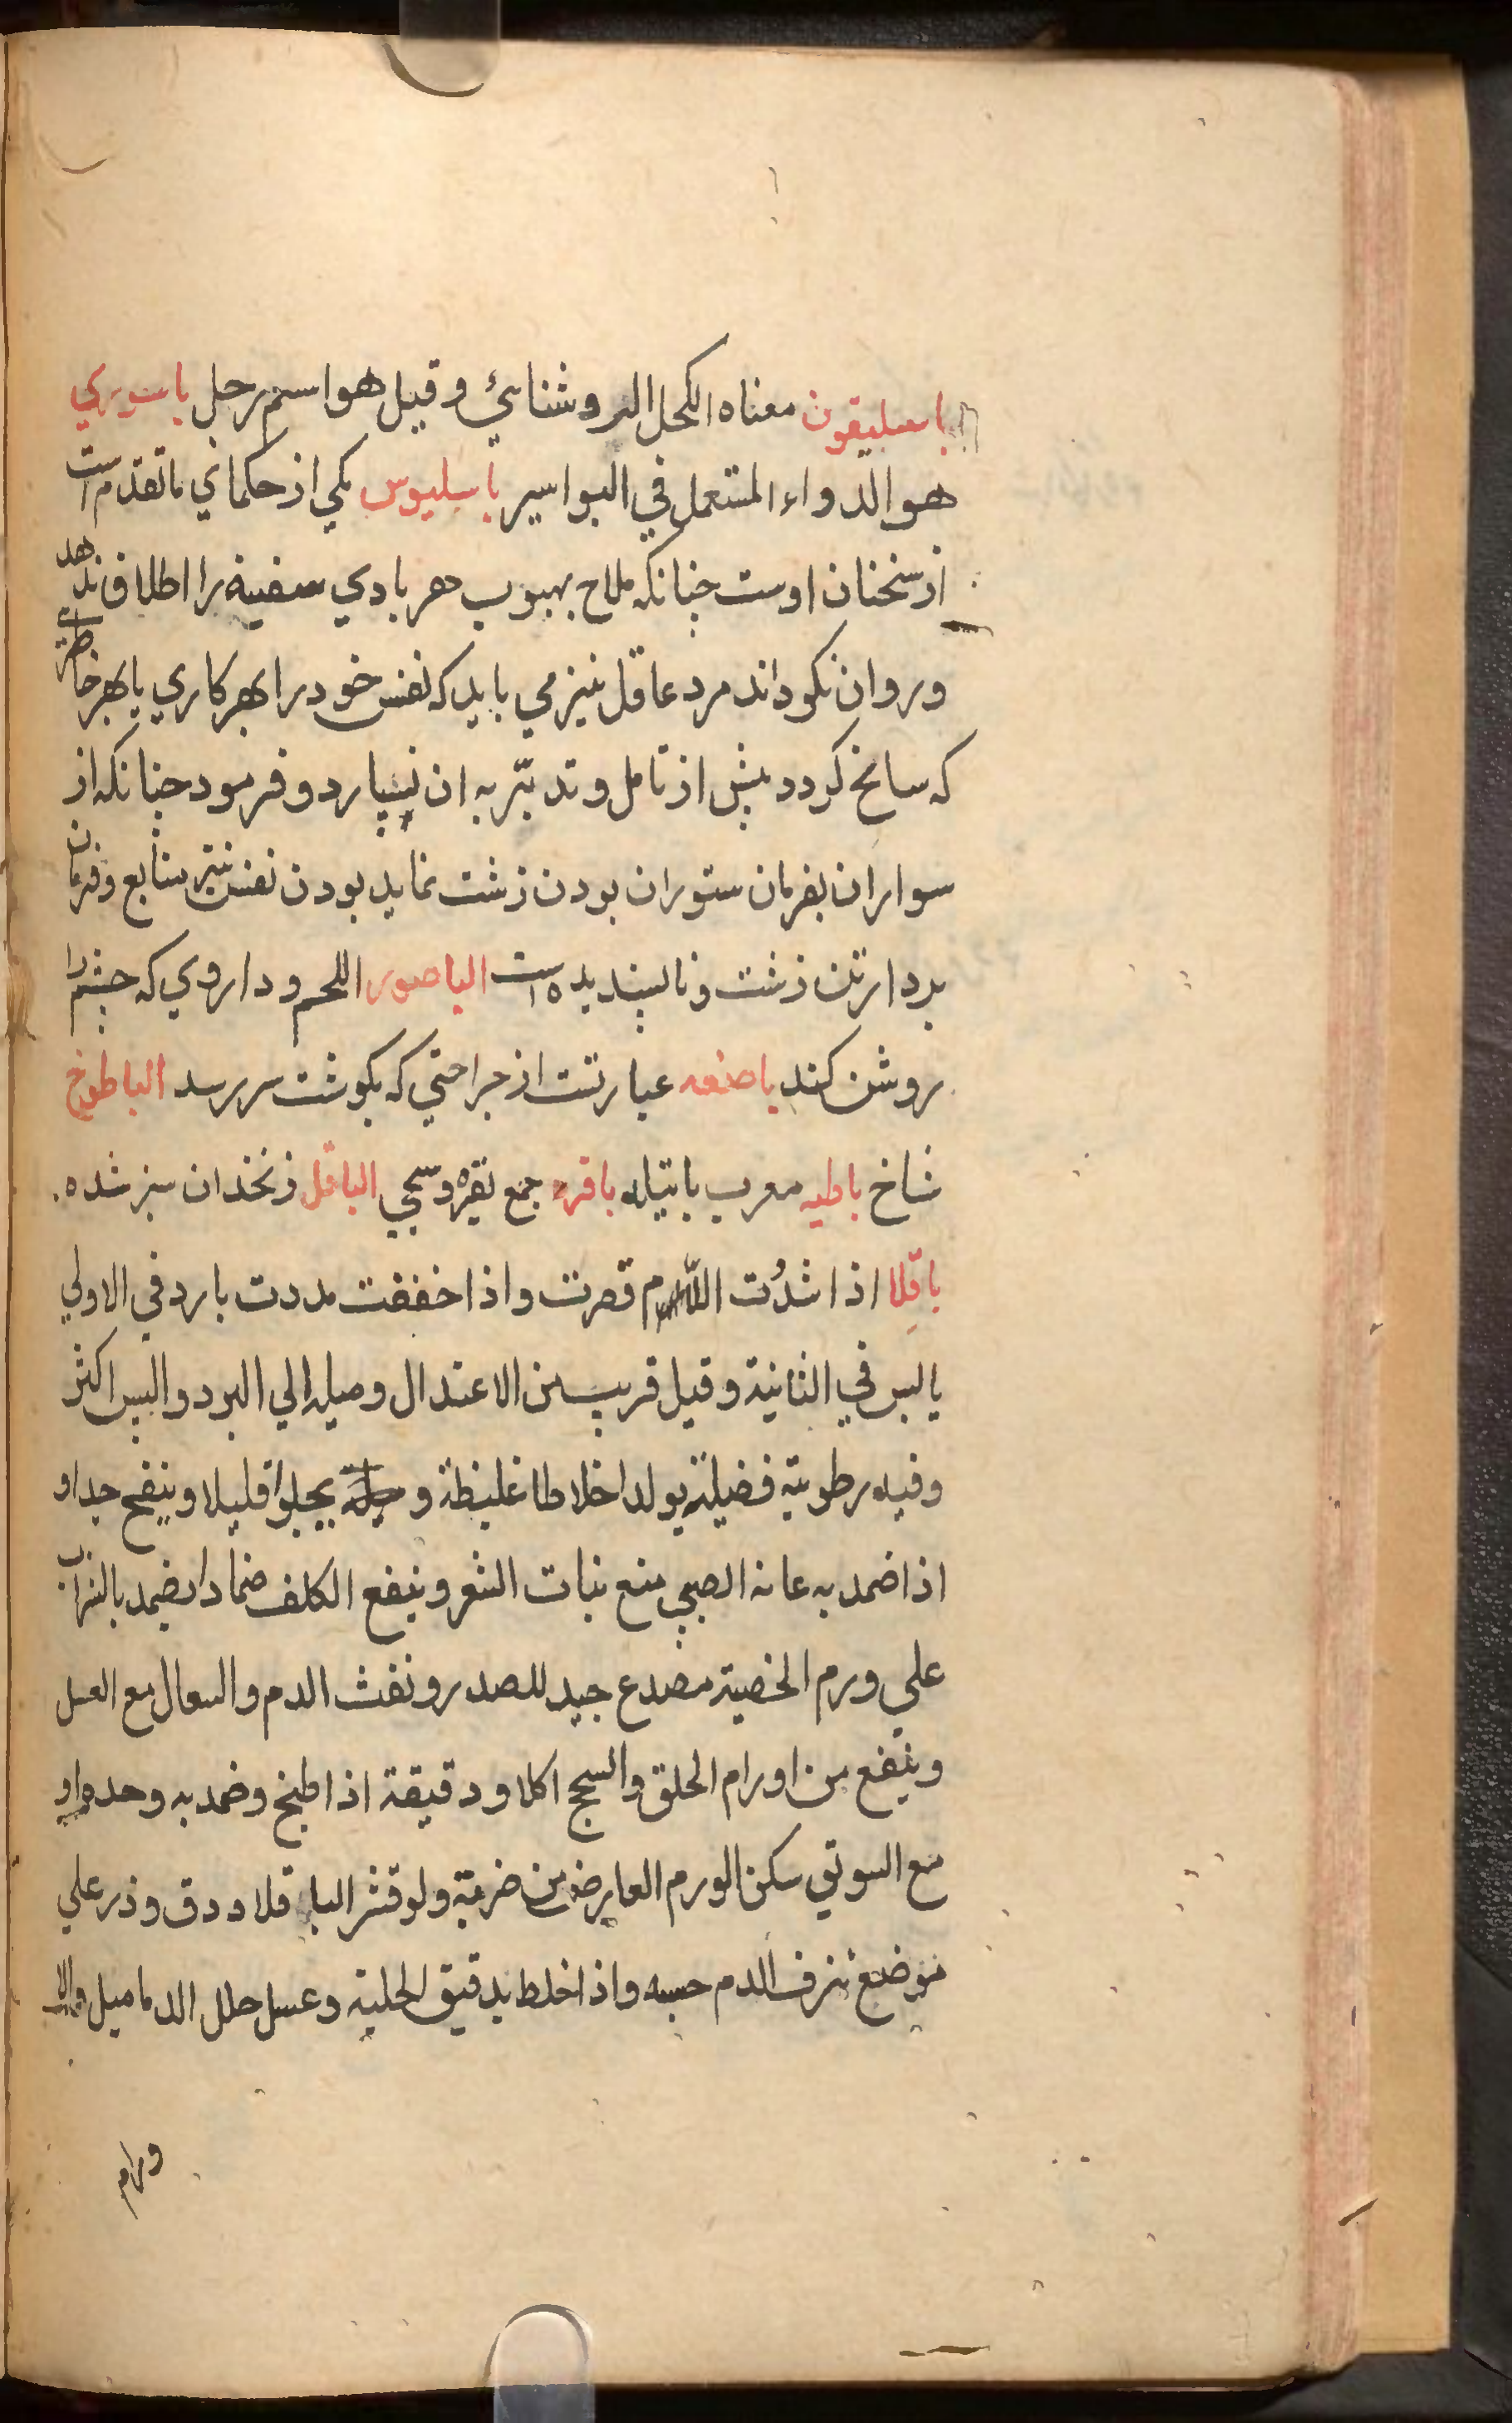 باسليقون معناه الكحل الروشنائي وقيل هو اسم رجل باسوري
هو الدواء المستعمل في البواسير باسليوس يكي از حكماي ما تقدم است
از سخنان اوست چنانكه ملاح بهبوب هر بادي سفينه را اطلاق ندهد
وروان نكرداند مرد عاقل نيز مي بايد كه نفس خود را بهر كاري يا بهر خاطري
كه سانح كردد پيش از تامل و تدبّر به ان نسپارد و فرمود چنانكه از
سواران بفرمان ستوران بودن زشت نمايد بودن نفس نيز متابع و فرمان
بردار تن زشت و ناپسنديده است الباصور اللحم و داروي كه چشم را
روشن كند باضعه عبارتست از جراحتي كه بكوشت سر رسد الباطوخ
شاخ باطيه معرب باتيله باقره جمع بقره وسحي الباقل زنخدان سبز شده
باقلا اذا شدُت اللام قصرت واذا خففت مددت بارد في الاولي
يابس في الثانية وقيل قريب من الاعتدال وميله الي البرد واليبس اكثر
وفيه رطوبة فضيلة يولد اخلاطا غليظة و يجلوا قليلا وينفخ جدا و
اذا ضمد به عانه الصبي منع نبات الشعر وينفع الكلف ضمادا يضمد بالشراب
علي ورم الخصية مصدع جيد للصدر ونفث الدم والسعال مع العسل
وينفع من اورام الحلق والسحج اكلا ودقيقة اذا طبخ وضمد به وحده او
مع السويق سكن الورم العارض من ضربة ولو قشر الباقلا ودق وذر علي
موضع نزف الدم حبسه واذا خلط بدقيق الحلبة وعسل حلل الدماميل والا
ورام